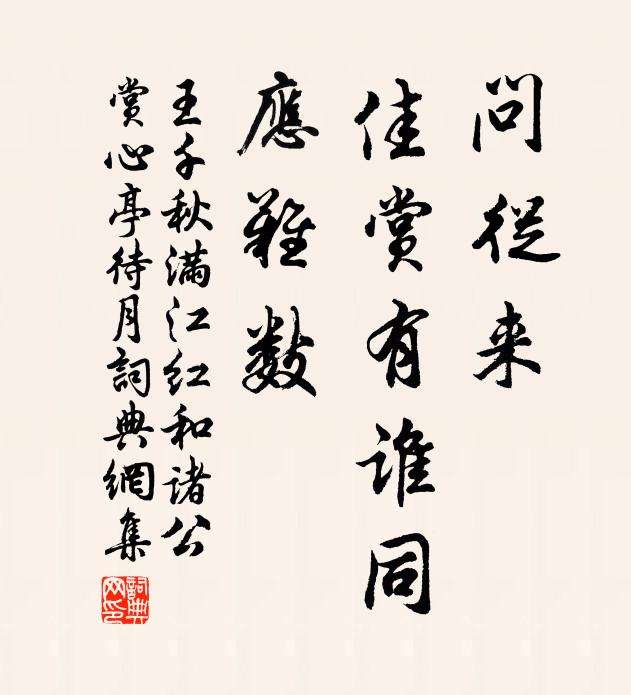 問從来
佳賞有誰同
應難數
王千秋滿江红和諸公
賞心亭待月詞典網集
詞典网印